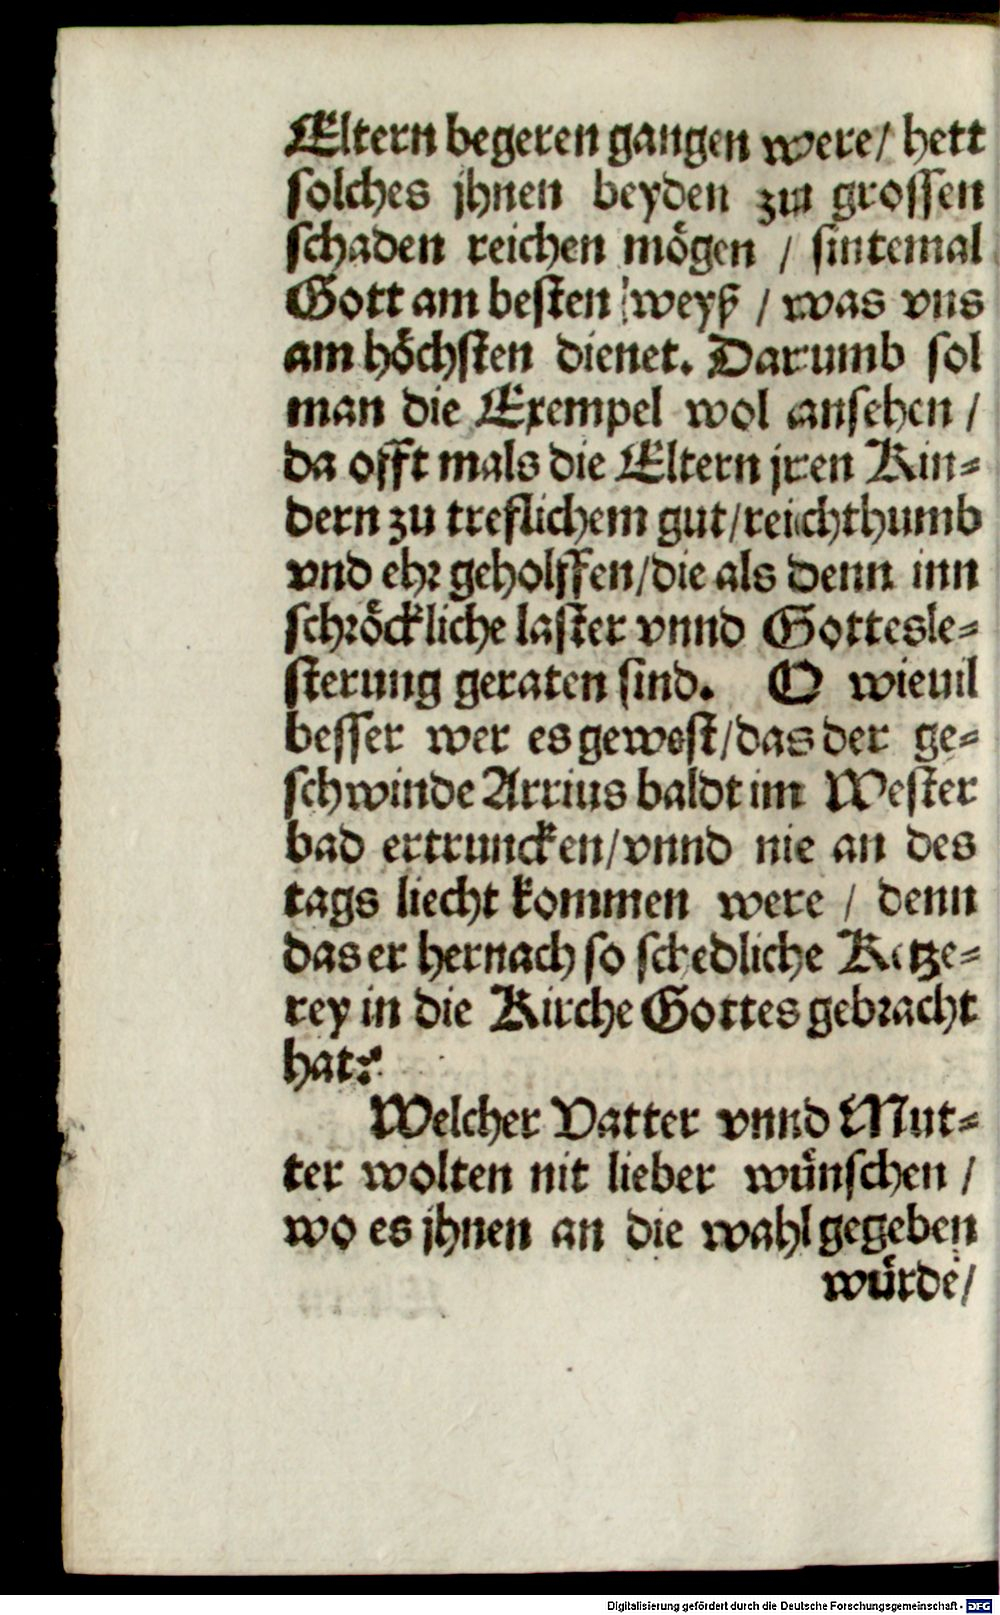 Eltern begeren gangen were / hett
solches jhnen beyden zu grossen
schaden reichen mögen / sintemal
Gott am besten weyß / was vns
am höchsten dienet. Darumb sol
man die Exempel wol ansehen /
da offt mals die Eltern jren Kin-
dern zu treflichem gut / reichthumb
vnd ehr geholffen / die als denn inn
schröckliche laster vnnd Gottesle-
sterung geraten sind. O wieuil
besser wer es gewest / das der ge-
schwinde Arrius baldt im Wester
bad ertruncken / vnnd nie an des
tags liecht kommen were / denn
das er hernach so schedliche Ketze-
rey in die Kirche Gottes gebracht
hat?
Welcher Vatter vnnd Mut-
ter wolten nit lieber wünschen /
wo es jhnen an die wahl gegeben
würde /
Digitalisierung gefördert durch die Deutsche Forschungsgemeinschaft - DFG